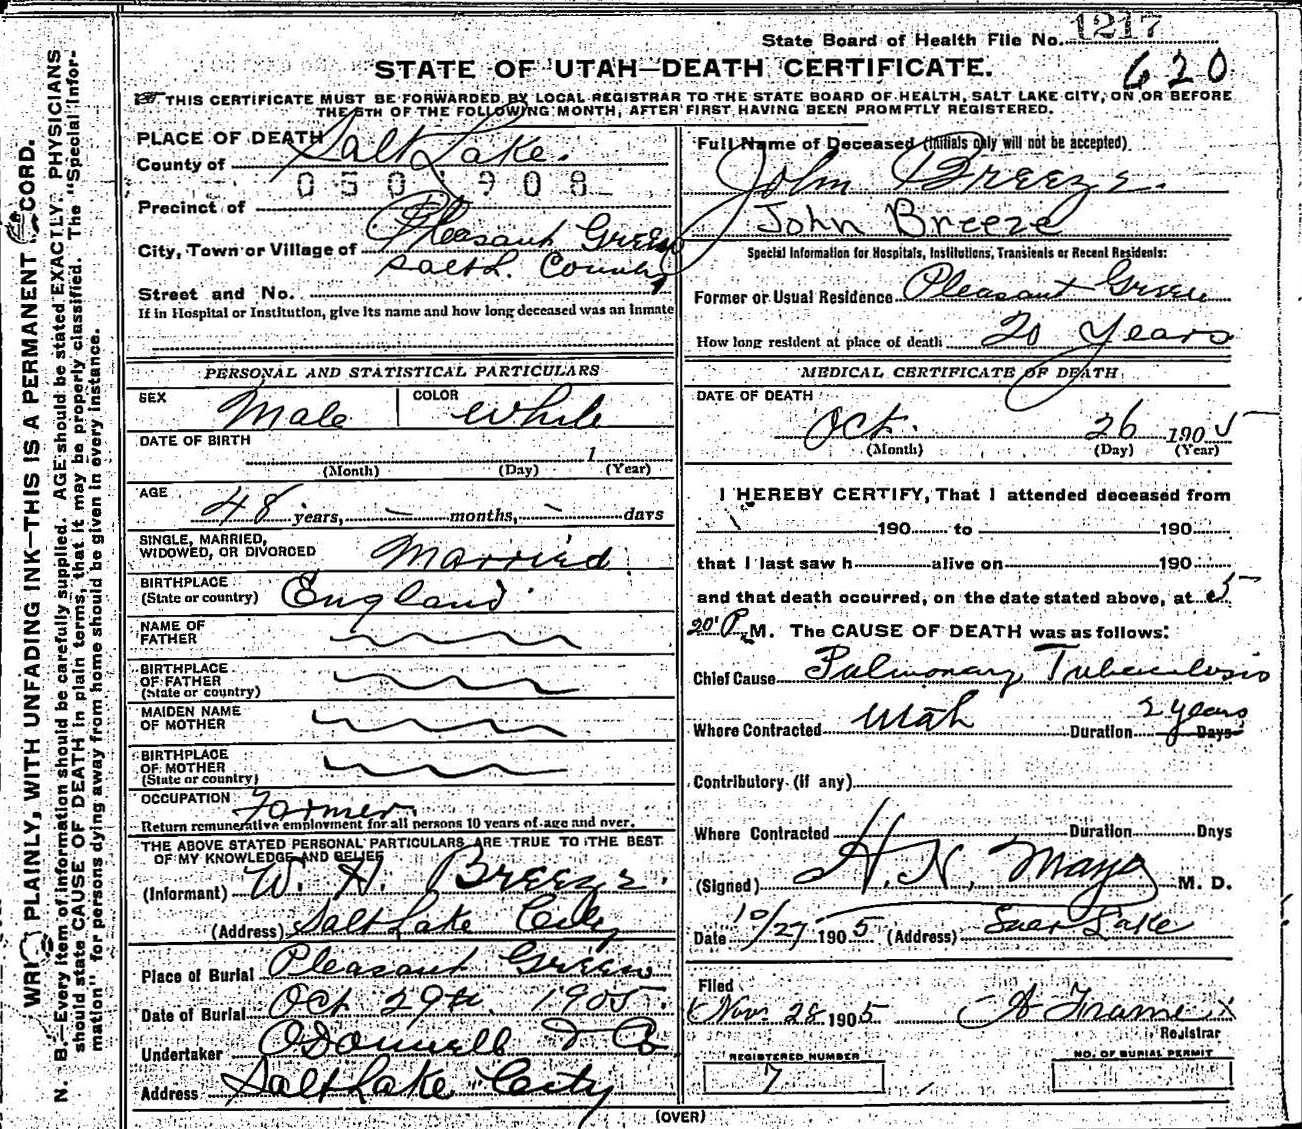 State Board of Health File No. 1217
620
STATE OF UTAH—DEATH CERTIFICATE.
THIS CERTIFICATE MUST BE FORWARDED BY LOCAL REGISTRAR TO THE STATE BOARD OF HEALTH, SALT LAKE CITY, ON OR BEFORE
THE 5TH OF THE FOLLOWING MONTH, AFTER FIRST HAVING BEEN PROMPTLY REGISTERED.
WRITE PLAINLY, WITH UNFADING INK—THIS IS A PERMANENT RECORD.
N. B.—Every item of information should be carefully supplied. AGE should be stated EXACTLY. PHYSICIANS
should state CAUSE OF DEATH in plain terms, that it may be properly classified. The "Special Infor-
mation" for persons dying away from home should be given in every instance.
PLACE OF DEATH
County of Salt Lake.
0 5 0 1 9 0 8
Precinct of
City, Town or Village of Pleasant Green
Salt L. County
Street and No.
If in Hospital or Institution, give its name and how long deceased was an inmate
PERSONAL AND STATISTICAL PARTICULARS
SEX Male COLOR White
DATE OF BIRTH
1
(Month) (Day) (Year)
AGE 48 years, — months, — days
SINGLE, MARRIED,
WIDOWED, OR DIVORCED Married
BIRTHPLACE
(State or country) England
NAME OF
FATHER
BIRTHPLACE
OF FATHER
(State or country)
MAIDEN NAME
OF MOTHER
BIRTHPLACE
OF MOTHER
(State or country)
OCCUPATION Farmer.
Return remunerative employment for all persons 10 years of age and over.
THE ABOVE STATED PERSONAL PARTICULARS ARE TRUE TO THE BEST
OF MY KNOWLEDGE AND BELIEF
(Informant) W. H. Breeze.
(Address) Salt Lake City
Place of Burial Pleasant Green
Date of Burial Oct 29th. 1905.
Undertaker O'Donnell & Co
Address Salt Lake City
Full Name of Deceased (Initials only will not be accepted)
John Breeze.
John Breeze
Special Information for Hospitals, Institutions, Transients or Recent Residents:
Former or Usual Residence Pleasant Green
How long resident at place of death 20 Years
MEDICAL CERTIFICATE OF DEATH
DATE OF DEATH
Oct. 26 1905
(Month) (Day) (Year)
I HEREBY CERTIFY, That I attended deceased from
190 to 190
that I last saw h alive on 190
and that death occurred, on the date stated above, at 5
20 P. M. The CAUSE OF DEATH was as follows:
Chief Cause Pulmonary Tuberculosis
Where Contracted Utah Duration 2 years Days
Contributory (if any)
Where Contracted Duration Days
(Signed) H. N. Mayo M. D.
Date 10/27 1905 (Address) Salt Lake
Filed
Nov. 28 1905 A Frame
Registrar
REGISTERED NUMBER
7
NO. OF BURIAL PERMIT
(OVER)